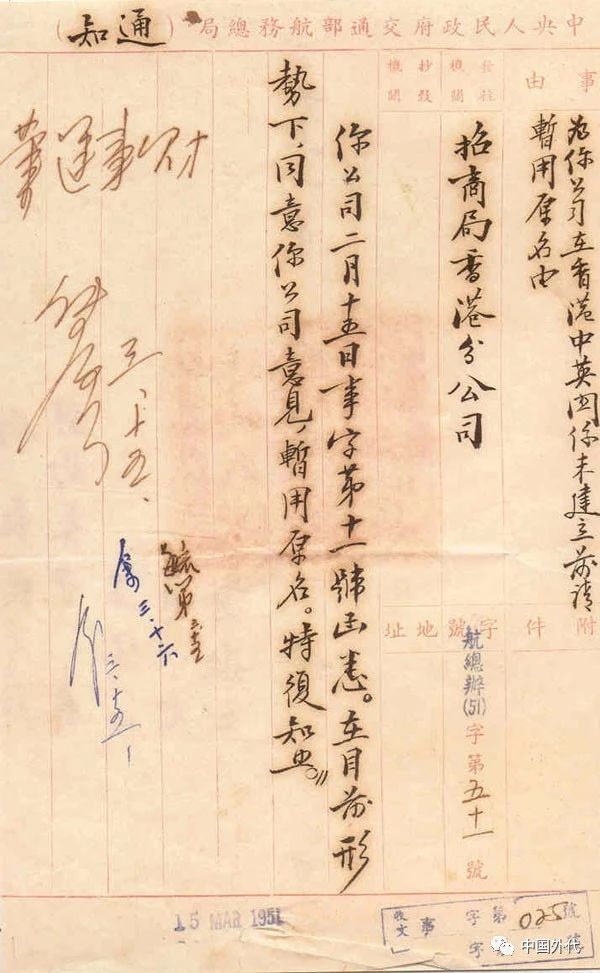 中央人民政府交通部航務總局（通知）
事由
為你公司在香港中英関係未建立前請
暫用原名由
附件
發往機關
抄致機關
招商局香港分公司
字號地址
航總辦(51)字第五十一號
你公司二月十五日事字第十一號函悉。在目前形
勢下，同意你公司意見，暫用原名。特復知典。
三、十五、
三、十六
15 MAR 1951
收文
事字第025號
字號
中国外代